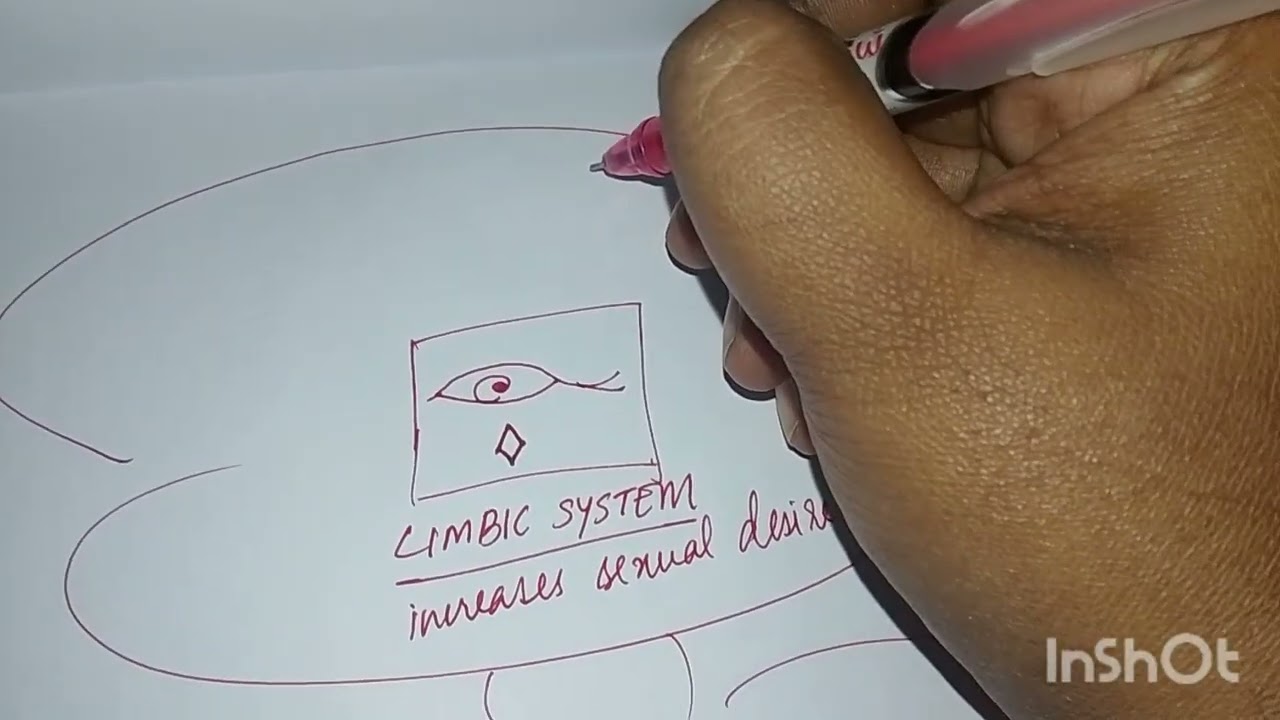 LIMBIC SYSTEM
increases sexual desire
InShOt